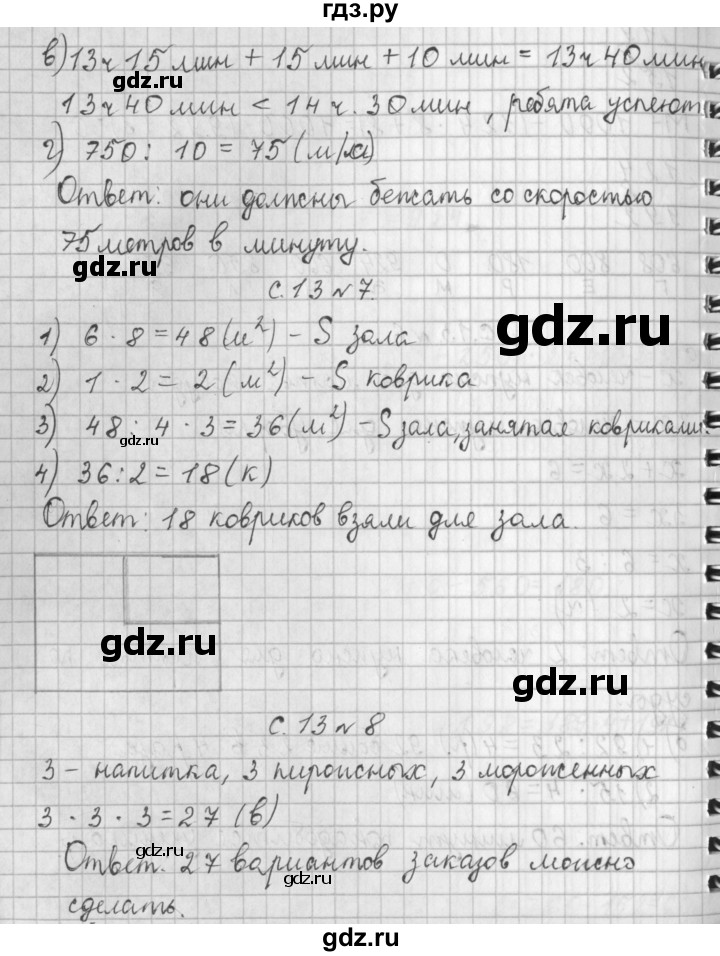 гдз.ру
в) 13ч 15 мин + 15 мин + 10 мин = 13ч 40 мин
gdz.ru
13ч 40 мин < 14 ч. 30 мин, ребята успеют
г) 750 : 10 = 75 (м/м)
Ответ: они должны бежать со скоростью
75 метров в минуту.
gdz.ru
с. 13 №7.
gdz.ru
1) 6 · 8 = 48 (м²) – S зала
2) 1 · 2 = 2 (м²) – S коврика
3) 48 : 4 · 3 = 36 (м²) – S зала, занятая ковриками.
gdz.ru
4) 36 : 2 = 18 (к)
gdz.ru
Ответ: 18 ковриков взяли для зала.
gdz.ru
gdz.ru
с. 13 №8
3 – напитка, 3 пироженных, 3 мороженных
3 · 3 · 3 = 27 (в)
gdz.ru
Ответ. 27 вариантов заказов можно
gdz.ru
сделать.
gdz.ru